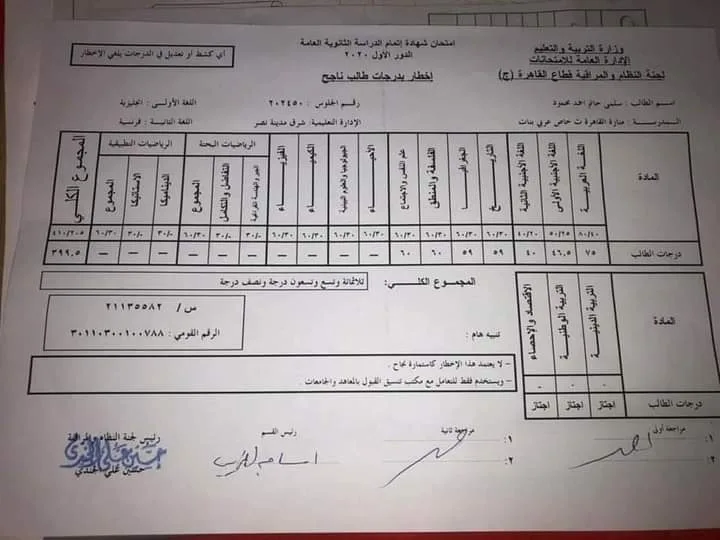 وزارة التربية والتعليم
الإدارة العامة للامتحانات
لجنة النظام والمراقبة قطاع القاهرة (ج)
امتحان شهادة إتمام الدراسة الثانوية العامة
الدور الأول ٢٠٢٠
إخطار بدرجات طالب ناجح
أي كشط أو تعديل في الدرجات يلغي الإخطار
اسم الطالب : سلمى حاتم احمد محمود
رقم الجلوس : ٢٠٢٤٥٠
اللغة الأولى : انجليزية
المدرسة : منارة القاهرة ث خاص عربي بنات
الإدارة التعليمية : شرق مدينة نصر
اللغة الثانية : فرنسية
المادة
اللغة العربية
اللغة الأجنبية الأولى
اللغة الأجنبية الثانية
التاريخ
الجغرافيا
الفلسفة والمنطق
علم النفس والاجتماع
الأحياء
الجيولوجيا والعلوم البيئية
الكيمياء
الفيزياء
الرياضيات البحتة
الجبر والهندسة الفراغية
التفاضل والتكامل
المجموع
الرياضيات التطبيقية
الديناميكا
الاستاتيكا
المجموع
المجموع الكلي
٨٠/٤٠ ٥٠/٢٥ ٤٠/٢٠ ٦٠/٣٠ ٦٠/٣٠ ٦٠/٣٠ ٦٠/٣٠ ٦٠/٣٠ ٦٠/٣٠ ٦٠/٣٠ ٦٠/٣٠ ٣٠/- ٣٠/- ٦٠/٣٠ ٣٠/- ٣٠/- ٦٠/٣٠ ٤١٠/٢٠٥
درجات الطالب ٧٥ ٤٦.٥ ٤٠ ٥٩ ٥٩ ٦٠ ٦٠ — — — — — — — — — — ٣٩٩.٥
المجموع الكلي: ثلاثمائة وتسع وتسعون درجة ونصف درجة
المادة
التربية الدينية
التربية الوطنية
الاقتصاد والإحصاء
درجات الطالب اجتاز اجتاز اجتاز
س / ٢١١٣٥٥٨٢
الرقم القومي : ٣٠١١٠٣٠٠١٠٠٧٨٨
تنبيه هام :
- لا يعتمد هذا الإخطار كاستمارة نجاح .
- ويستخدم فقط للتعامل مع مكتب تنسيق القبول بالمعاهد والجامعات .
مراجعة أولى
١:
٢:
مراجعة ثانية
١:
٢:
رئيس القسم
رئيس لجنة النظام والمراقبة
حسين علي الجندي